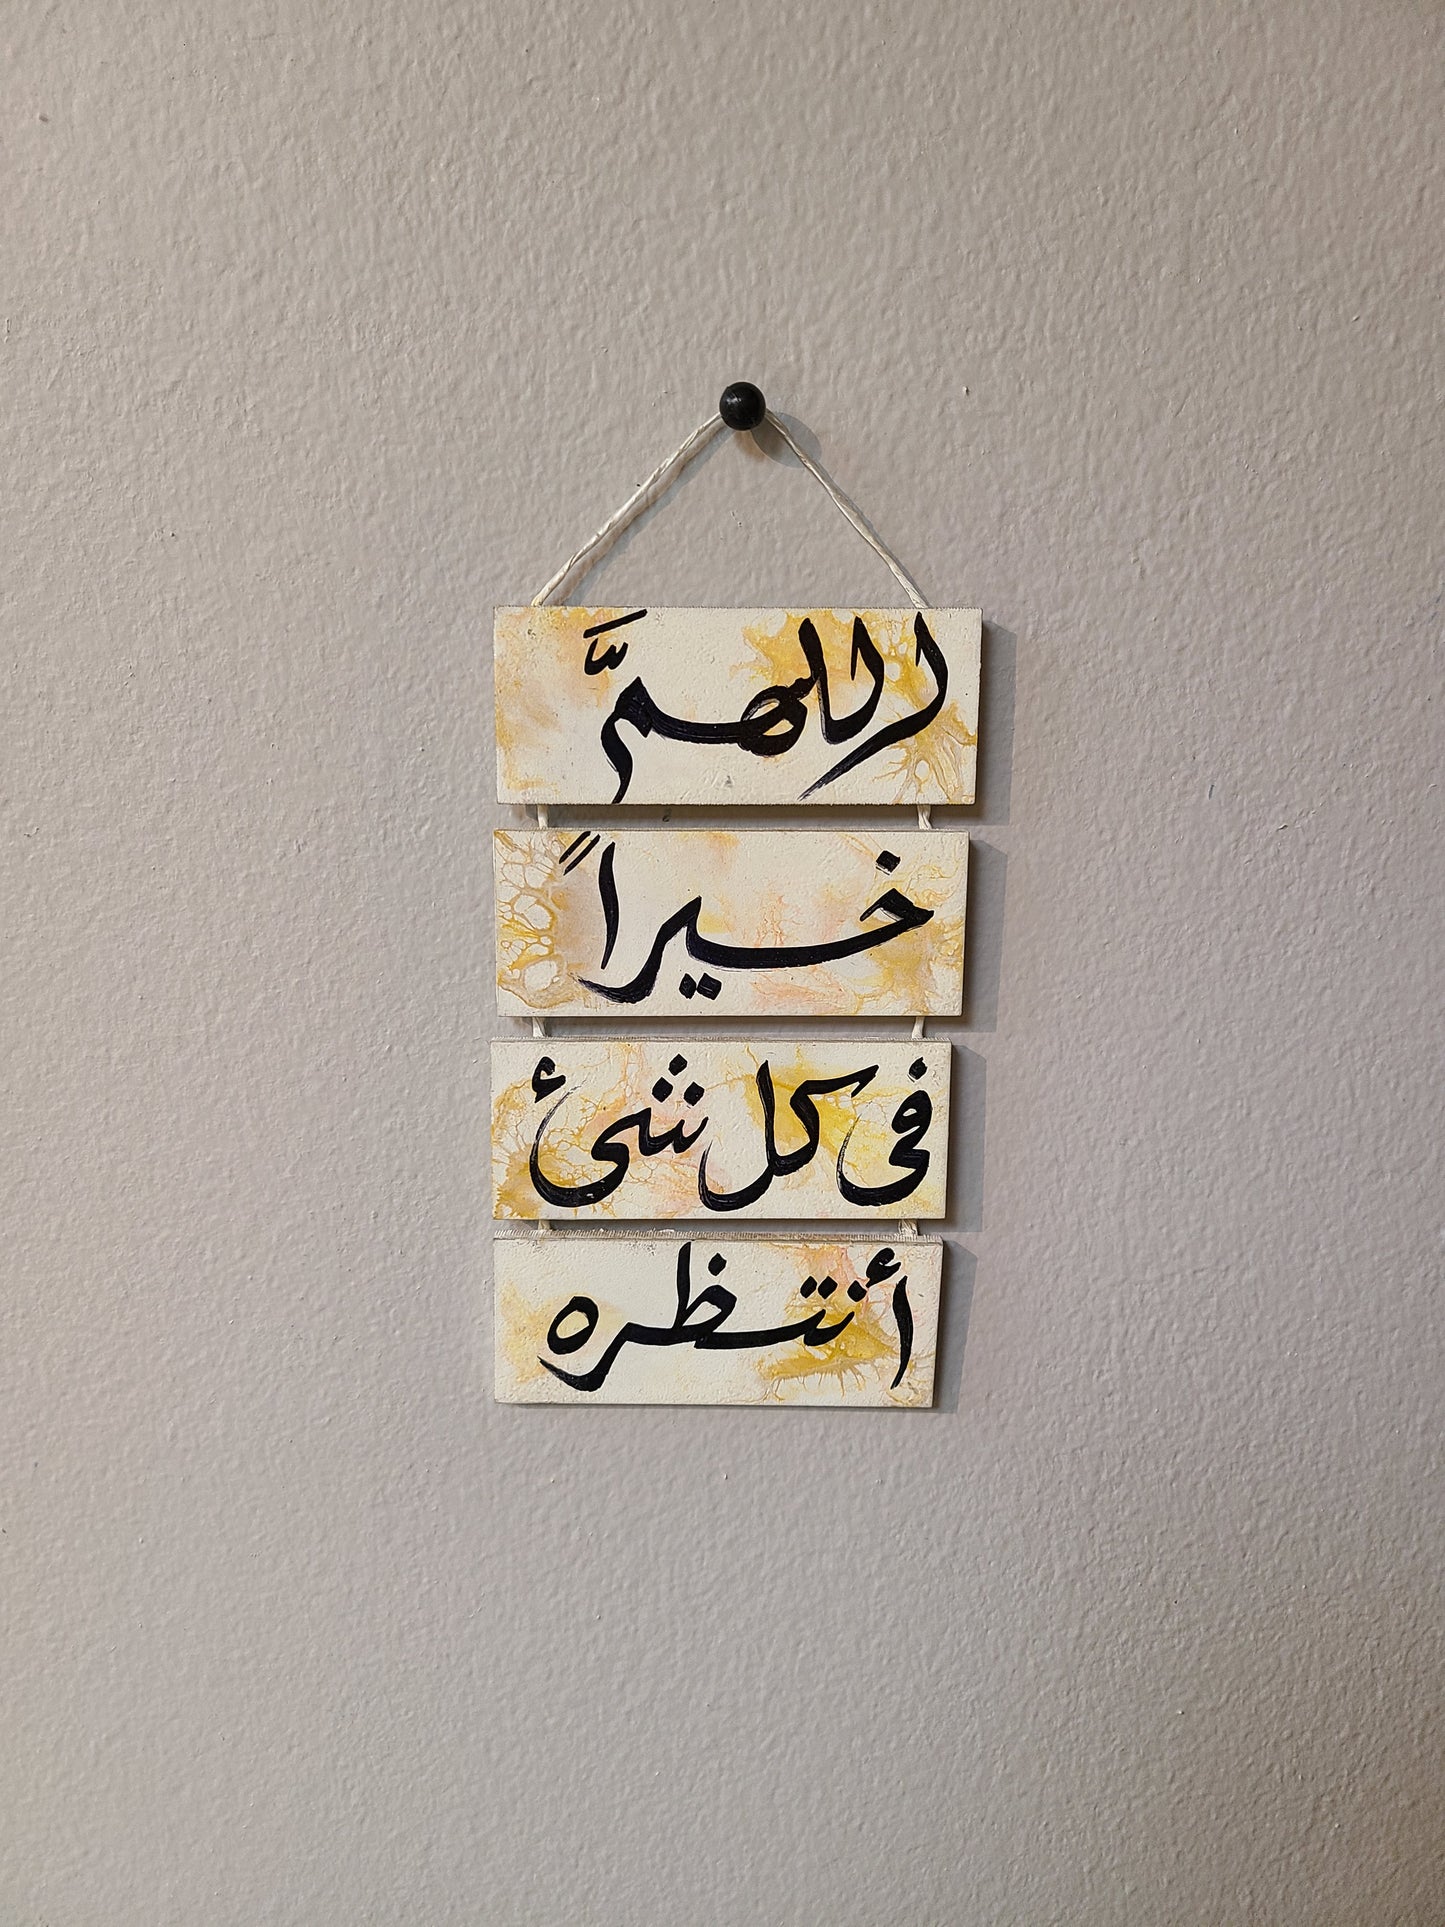 اللهمَّ
خيراً
فى كل شئ
أنتظره